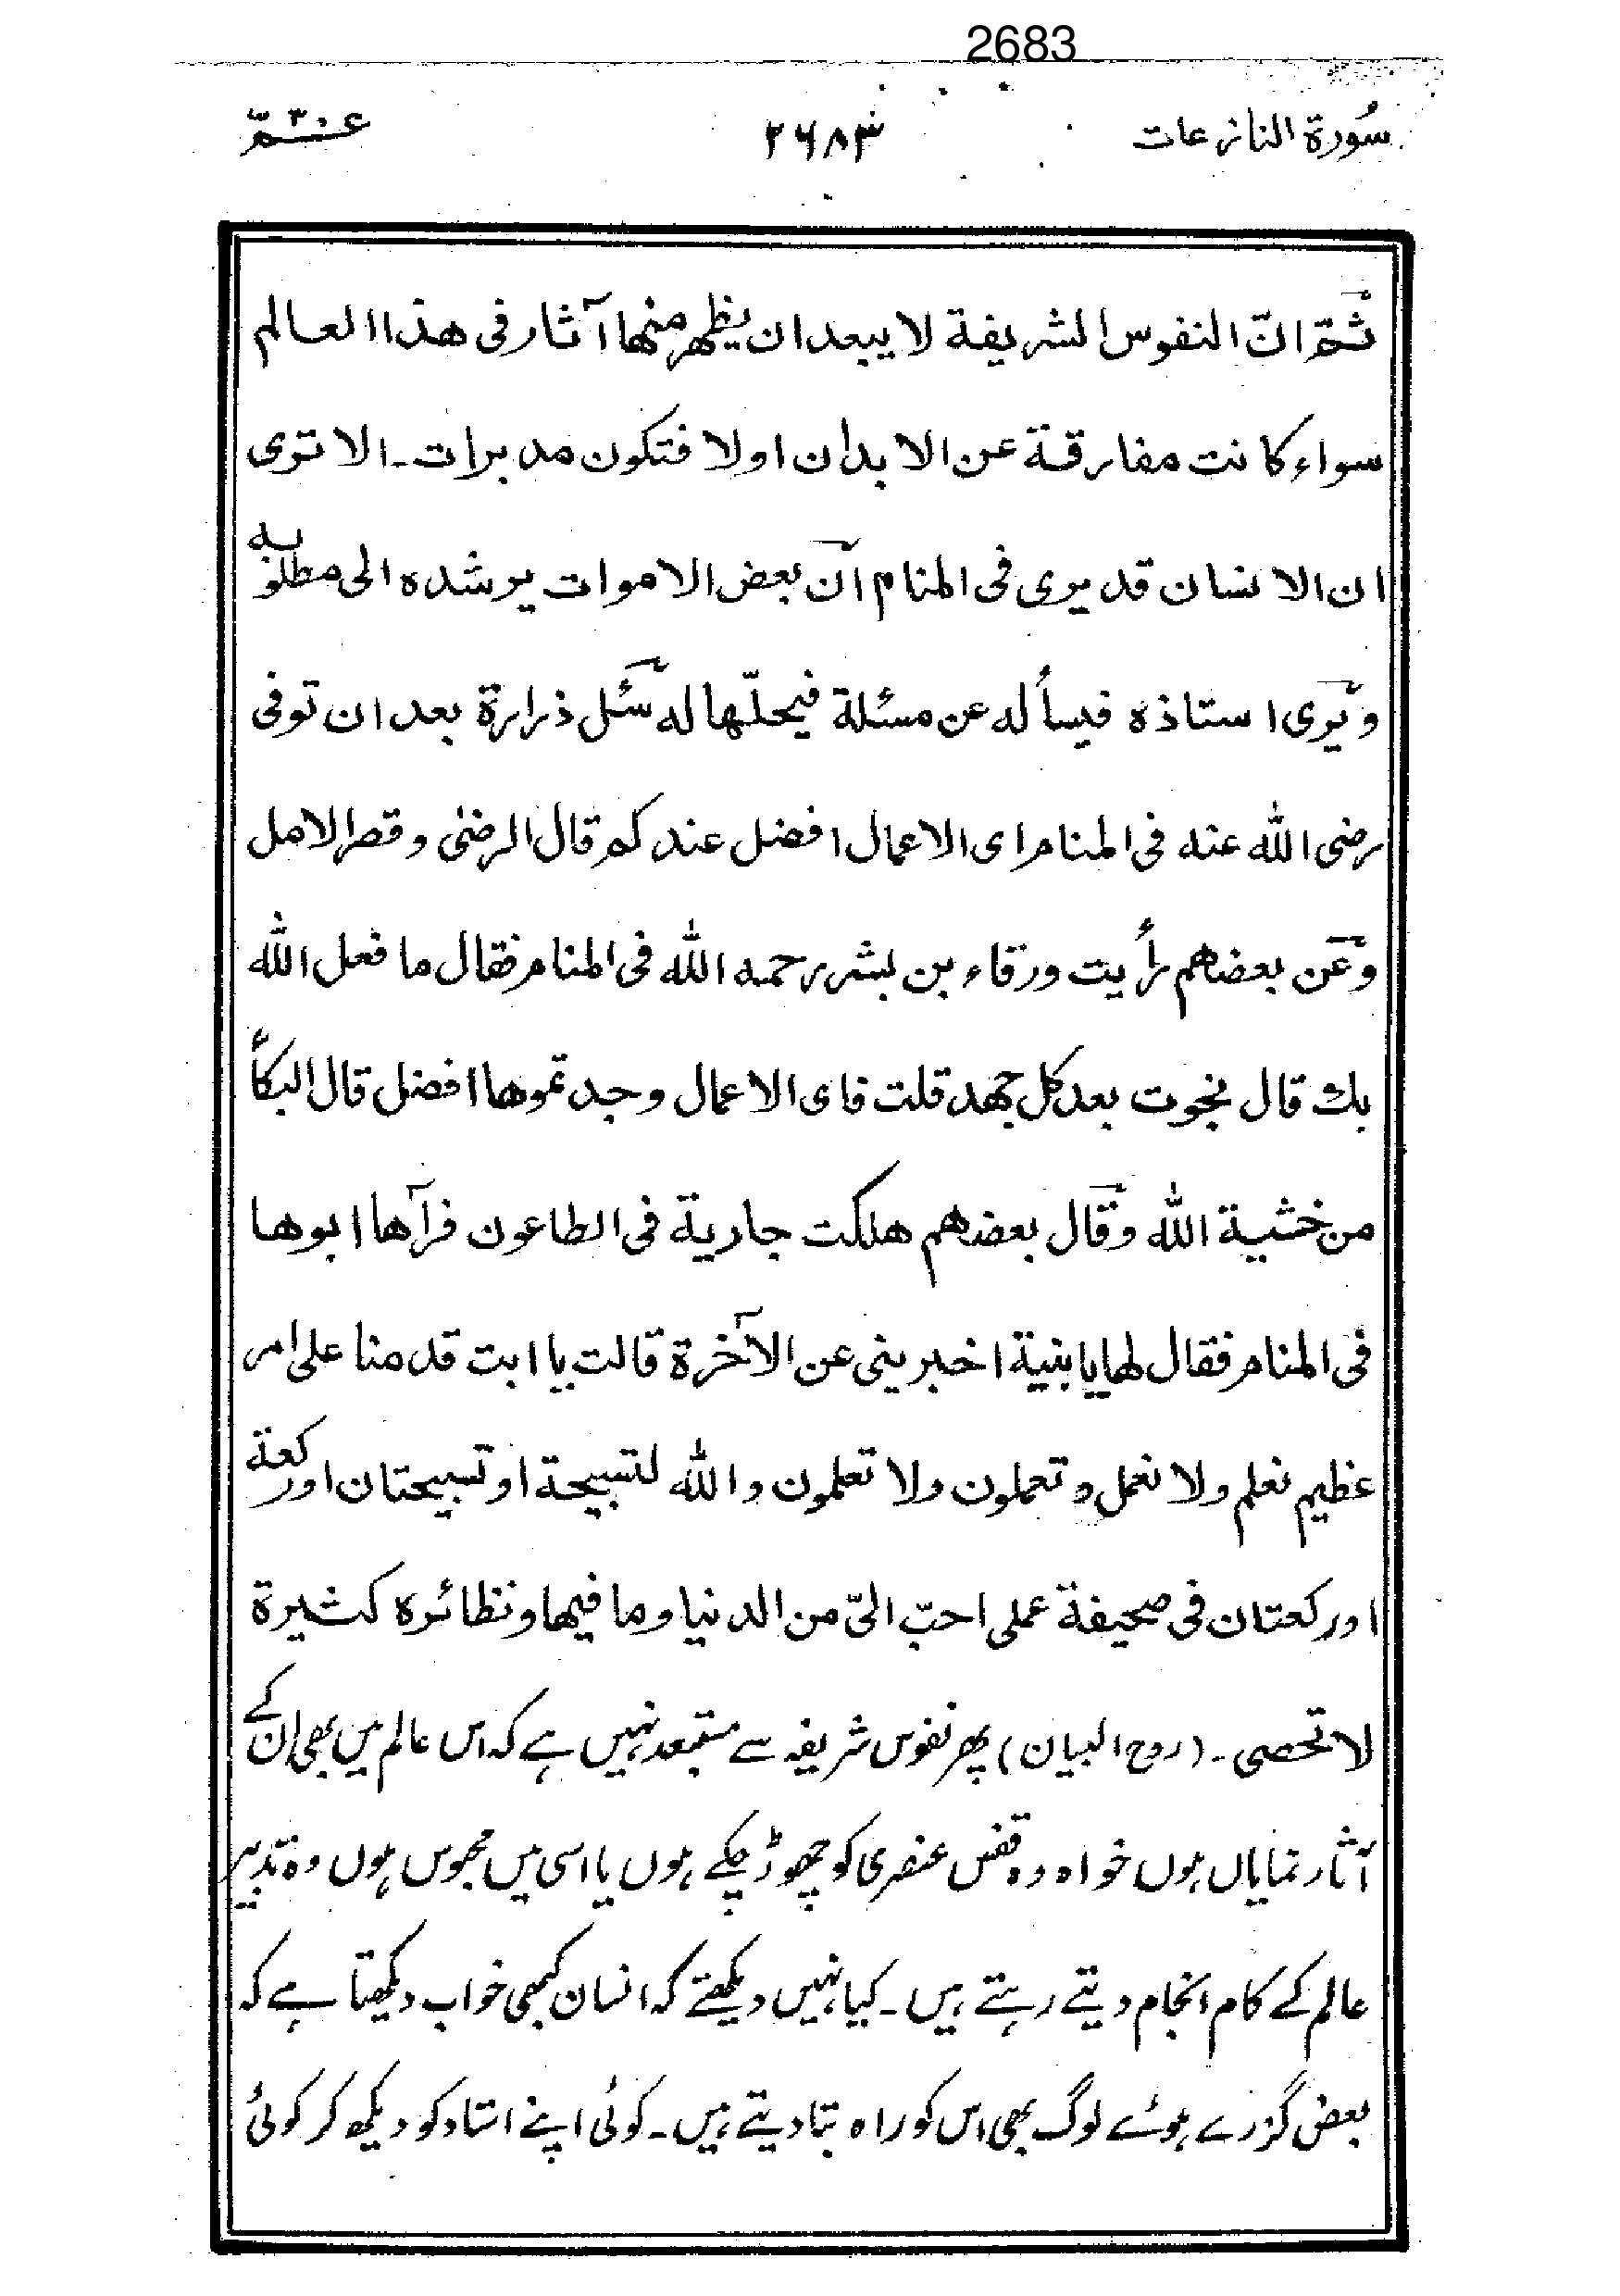 2683
سُورة النازعات ۲۶۸۳ عمّ ۳۰
ثمّ انّ النفوس الشريفة لا يبعد ان يظهر منها آثار فى هذا العالم
سواء كانت مفارقة عن الابدان اولا فتكون مدبرات۔ الا ترى
ان الانسان قد يرى فى المنام انّ بعض الاموات يرشده الى مطلوبه
ويرى استاذه فيسأله عن مسئلة فيحلّها له سئل ذرارة بعد ان توفى
رضى الله عنه فى المنام اى الاعمال افضل عندكم قال الرضىٰ وقصر الامل
وعن بعضهم رأيت ورقاء بن بشر رحمه الله فى المنام فقال ما فعل الله
بك قال نجوت بعد كل جهد قلت فاى الاعمال وجدتموها افضل قال البكأ
من خشية الله وقال بعضهم هلكت جارية فى الطاعون فرآها ابوها
فى المنام فقال لها يا بنية اخبرينى عن الآخرة قالت يا ابت قدمنا على امر
عظيم نعلم ولا نعمل وتعملون ولا تعلمون والله لتسبيحة او تسبيحتان او ركعة
او ركعتان فى صحيفة عملى احبّ الىّ من الدنيا وما فيها ونظائره كثيرة
لا تحصى۔ (روح البيان) پھر نفوس شریفہ سے مستبعد نہیں ہے کہ اس عالم میں بھی ان کے
آثار نمایاں ہوں خواہ وہ قفس عنصری کو چھوڑ چکے ہوں یا اسی میں محبوس ہوں وہ تدبیر
عالم کے کام انجام دیتے رہتے ہیں۔ کیا نہیں دیکھتے کہ انسان کبھی خواب دیکھتا ہے کہ
بعض گزرے ہوئے لوگ بھی اس کو راہ بتا دیتے ہیں۔ کوئی اپنے استاد کو دیکھ کر کوئی